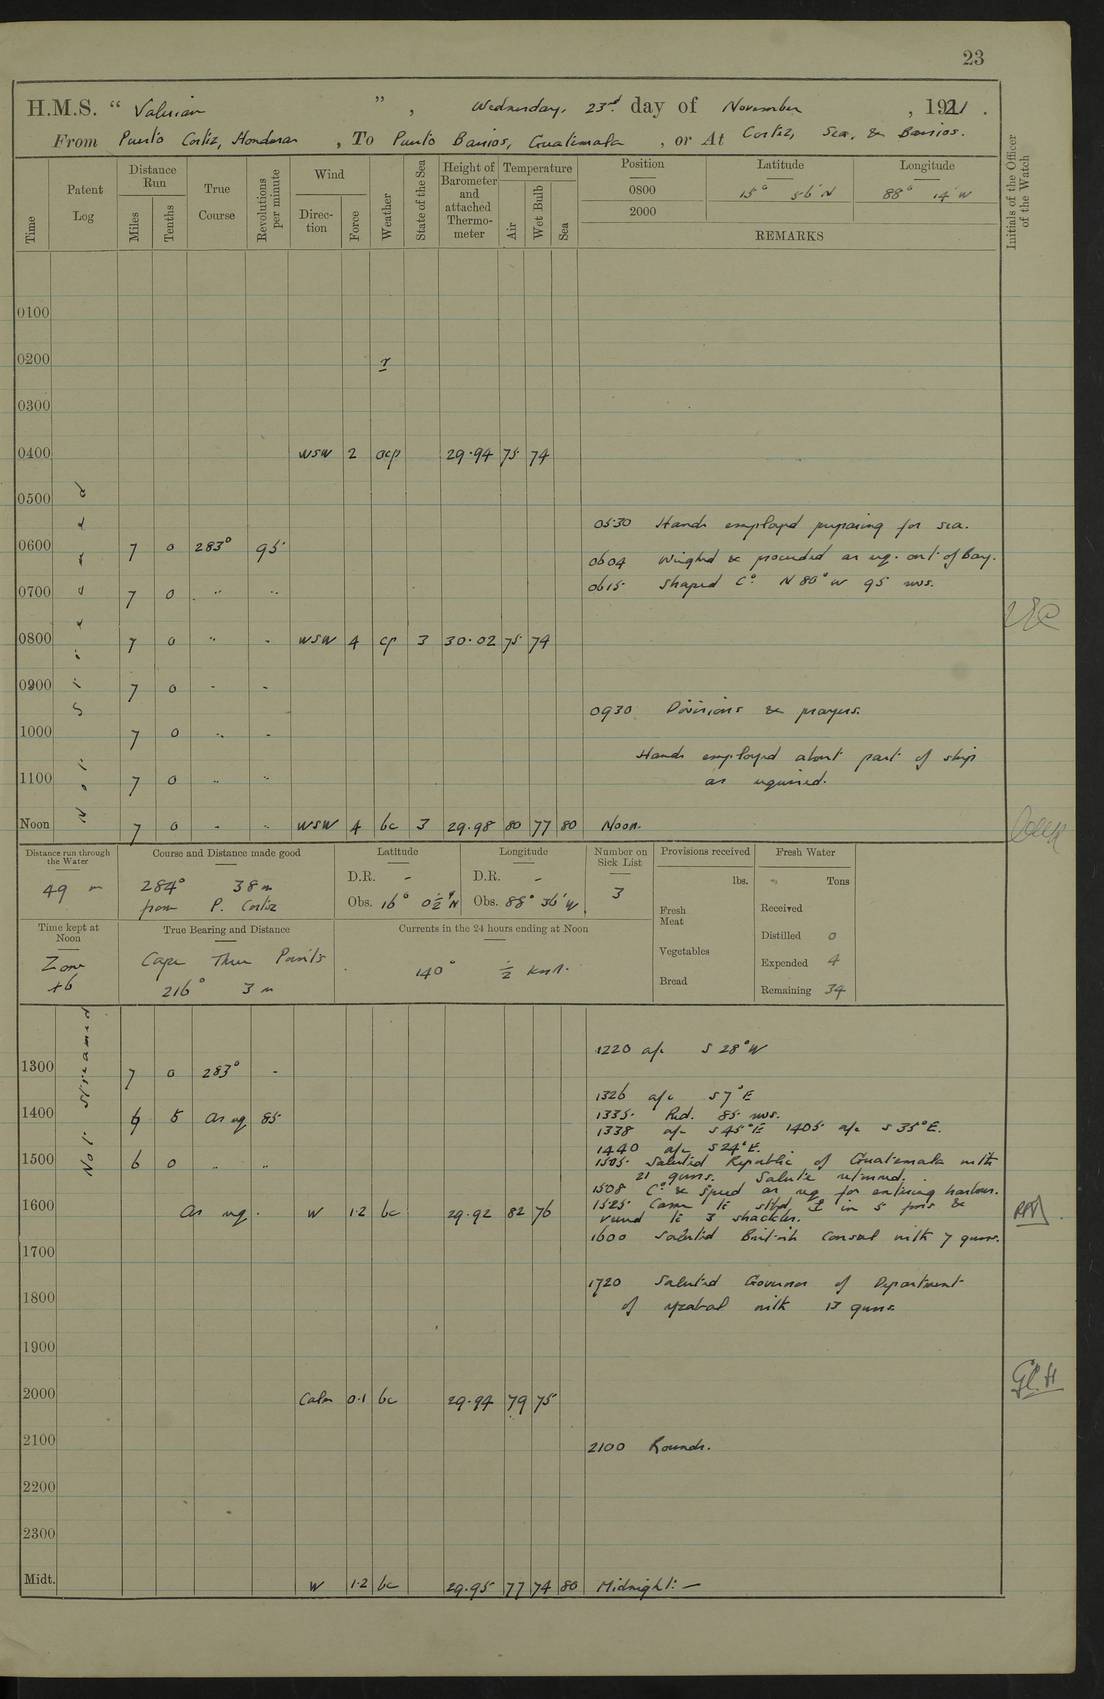 23
H.M.S. “ Valerian ” , Wednesday, 23rd day of November , 1921 .
From Puerto Cortez, Honduras , To Puerto Barrios, Guatemala , or At Cortez, Sea, & Barrios.
Time
Patent Log
Distance Run
Miles
Tenths
True Course
Revolutions per minute
Wind
Direction
Force
Weather
State of the Sea
Height of Barometer and attached Thermometer
Temperature
Air
Wet Bulb
Sea
Position
0800
2000
Latitude
15° 56' N
Longitude
88° 14' W
REMARKS
Initials of the Officer of the Watch
Not Streamed
0100
0200 r
0300
0400 WSW 2 ocp 29.94 75 74
0500
0530 Hands employed preparing for sea.
0600 7 0 283° 95
0604 Weighed & proceeded as req. out of Bay.
0615 Shaped Co. N 80° W 95 revs.
0700 7 0 " "
0800 7 0 " " WSW 4 cp 3 30.02 75 74
0900 7 0 " "
0930 Divisions & prayers.
1000 7 0 " "
Hands employed about part of ship
as required.
1100 7 0 " "
Noon 7 0 " " WSW 4 bc 3 29.98 80 77 80 Noon.
Distance run through the Water
49 m
Course and Distance made good
284° 38 m
from P. Cortez
Latitude
D.R. -
Obs. 16° 0½' N
Longitude
D.R. -
Obs. 88° 36' W.
Number on Sick List
3
Provisions received
lbs.
Fresh Meat
Vegetables
Bread
Fresh Water
Tons
Received
Distilled 0
Expended 4
Remaining 34
Time kept at Noon
Zone +6
True Bearing and Distance
Cape Three Points
216° 3 m
Currents in the 24 hours ending at Noon
140° ½ knot.
Not Streamed
1220 a/c S 28° W
1300 7 0 283° "
1326 a/c S 7° E
1400 6 5 As req 85
1335 Red. 85 revs.
1338 a/c S 45° E 1405 a/c S 35° E.
1440 a/c S 24° E.
1500 6 0 " "
1505 Saluted Republic of Guatemala with
21 guns. Salute returned.
1508 Co. & Speed as req for entering harbour.
1525 Came to stbd ⚓ in 5 fms &
veered to 3 shackles.
1600 As req. W 1.2 bc 29.92 82 76
1600 Saluted British Consul with 7 guns.
1700
1720 Saluted Governor of Department
of Yzabal with 13 guns.
1800
1900
2000 Calm 0.1 bc 29.94 79 75
2100 2100 Rounds.
2200
2300
Midt. W 1.2 bc 29.95 77 74 80 Midnight: —
G.C.H